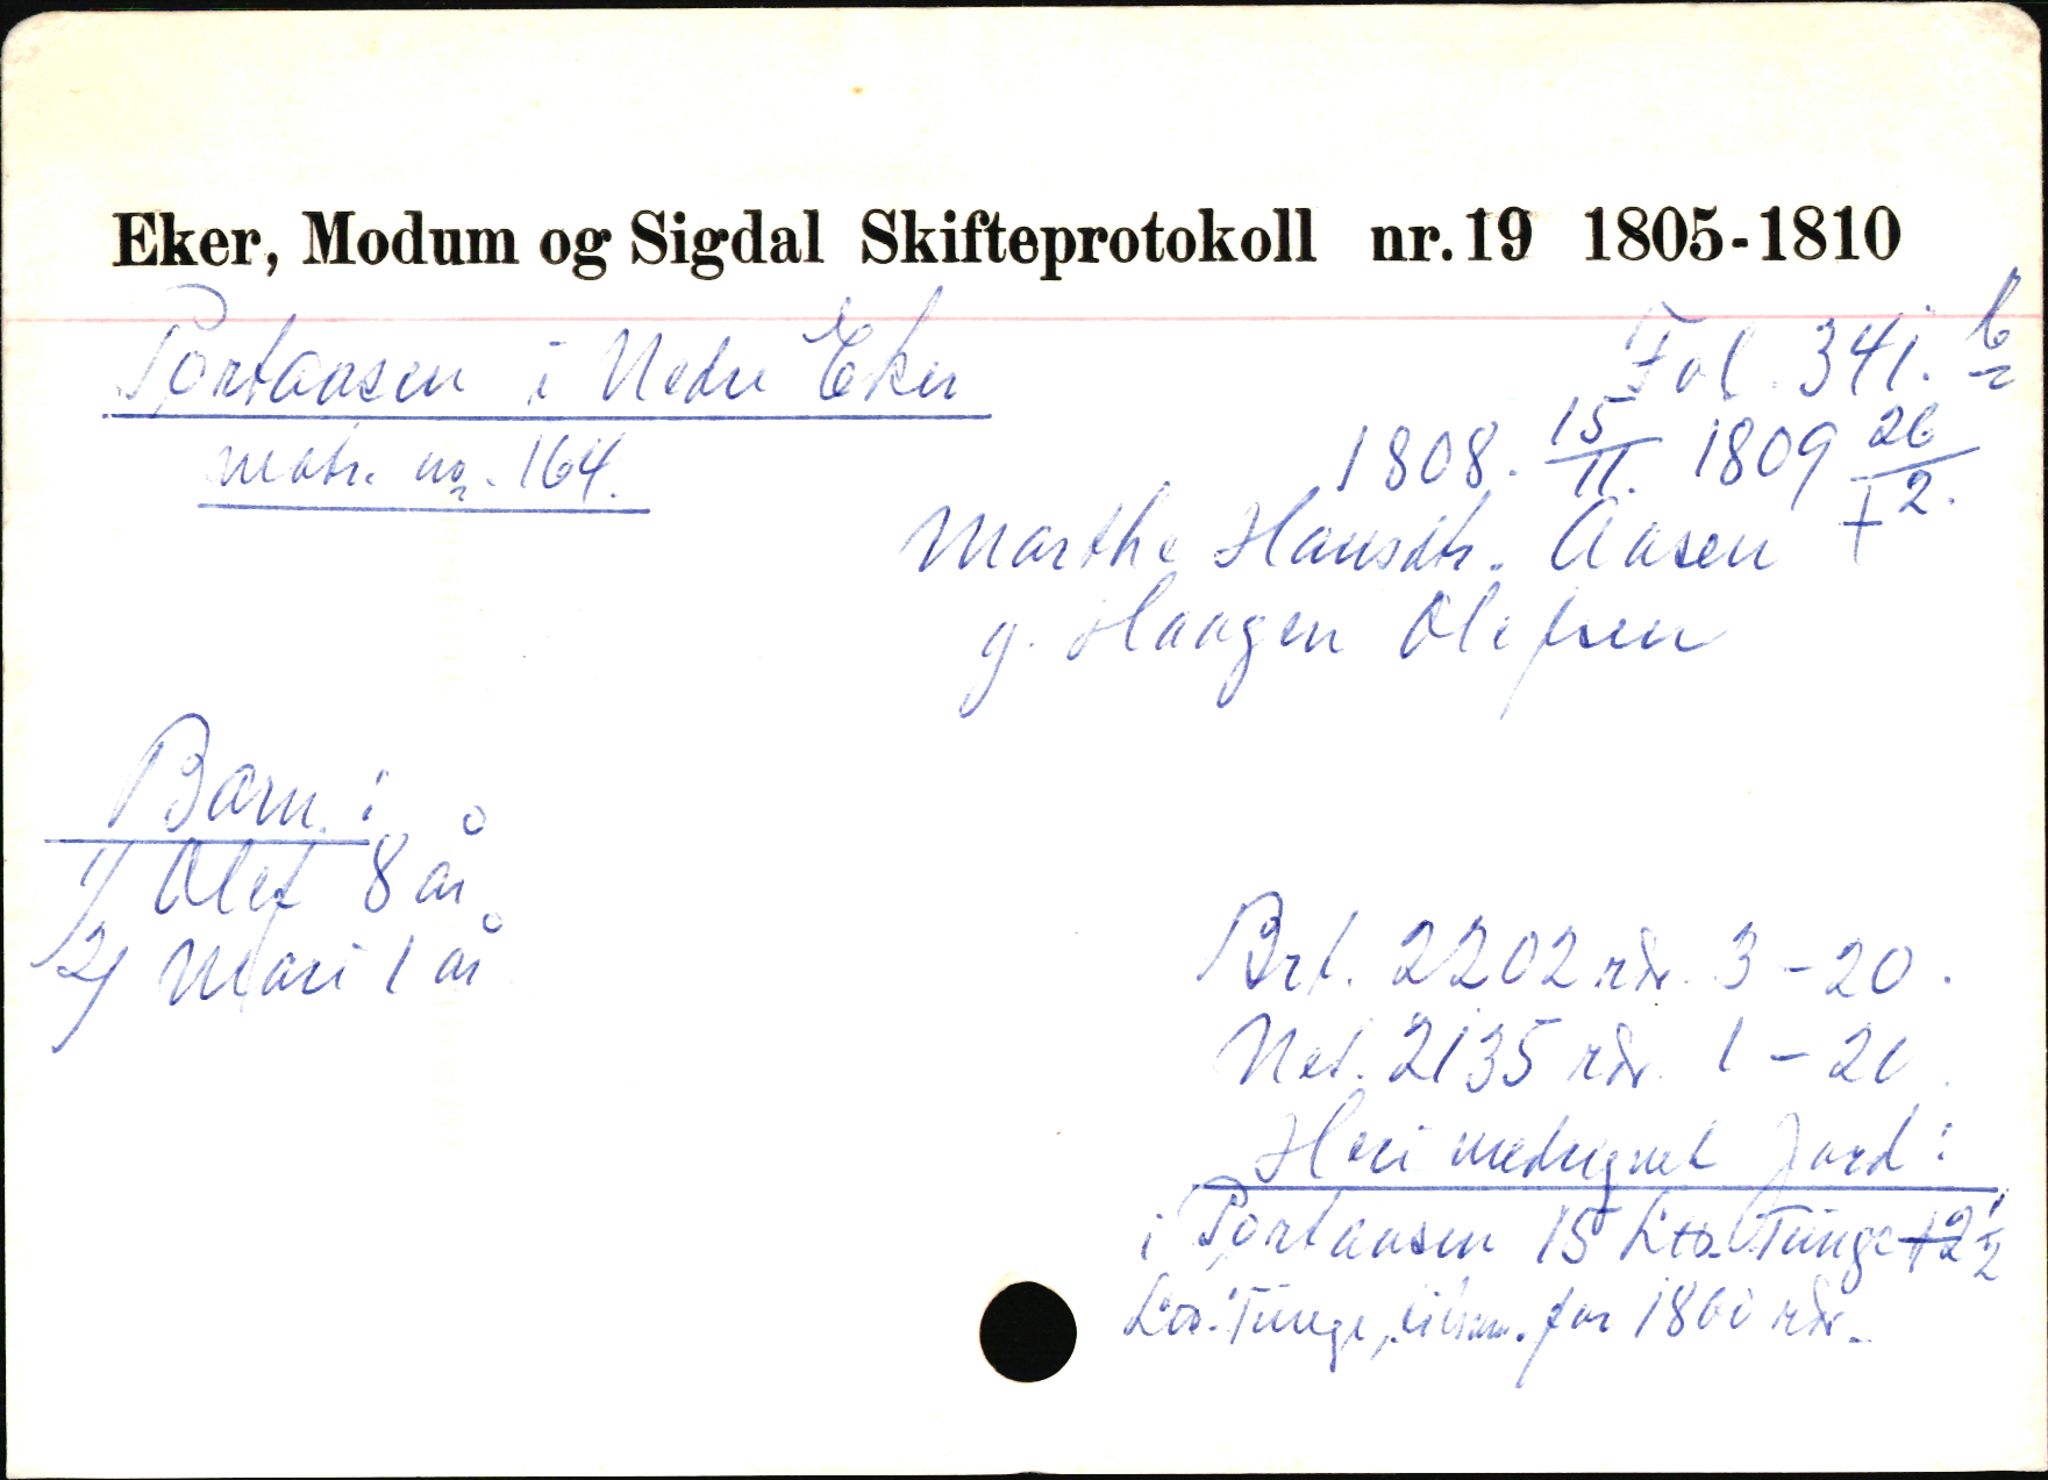 Eker, Modum og Sigdal Skifteprotokoll nr. 19 1805-1810
Portaasen i Nedre Eker
Fol. 341. b
matr. no. 164.
1808. 15/11. 1809 26/2.
Marthe Hansdtr. Aasen †
g. Haagen Olefsen
Barn:
1/ Olef 8 år
2/ Mari 1 år
Brt. 2202 rdr. 3 - 20.
Net. 2135 rdr. 1 - 20.
Heri medregnet Jord:
i Portaasen 15 Lto. Tunge + 2 1/2
Lto. Tunge, tilsam. for 1800 rdr.